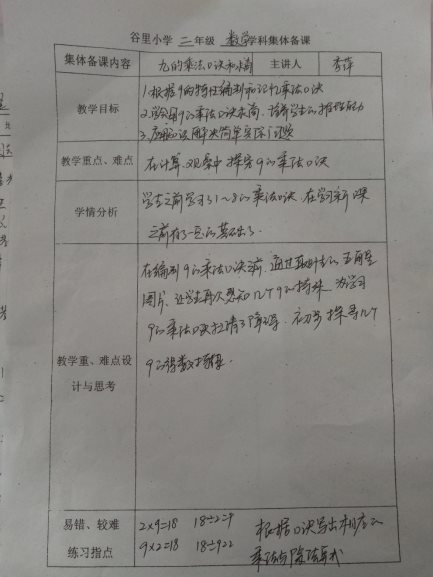 谷里小学 二年级 数学学科集体备课
集体备课内容 九的乘法口诀和求商 主讲人 李萍
教学目标
1.根据9的特性编制和记忆乘法口诀
2.学会用9的乘法口诀求商,培养学生的推理能力
3.应用知识解决简单实际问题
教学重点、难点 在计算、观察中探究9的乘法口诀
学情分析
学生之前学习了1~8的乘法口诀,在学习新课
之前有了一定的基础了.
教学重、难点设
计与思考
在编制9的乘法口诀之前,通过取出的五角星
图片,让学生再次感知几个9的特殊,为学习
9的乘法口诀扫清了障碍.初步探寻几个
9的得数
易错、较难
练习指点
2×9=18 18÷2=9 根据口诀写出相应的
9×2=18 18÷9=2 乘法与除法算式